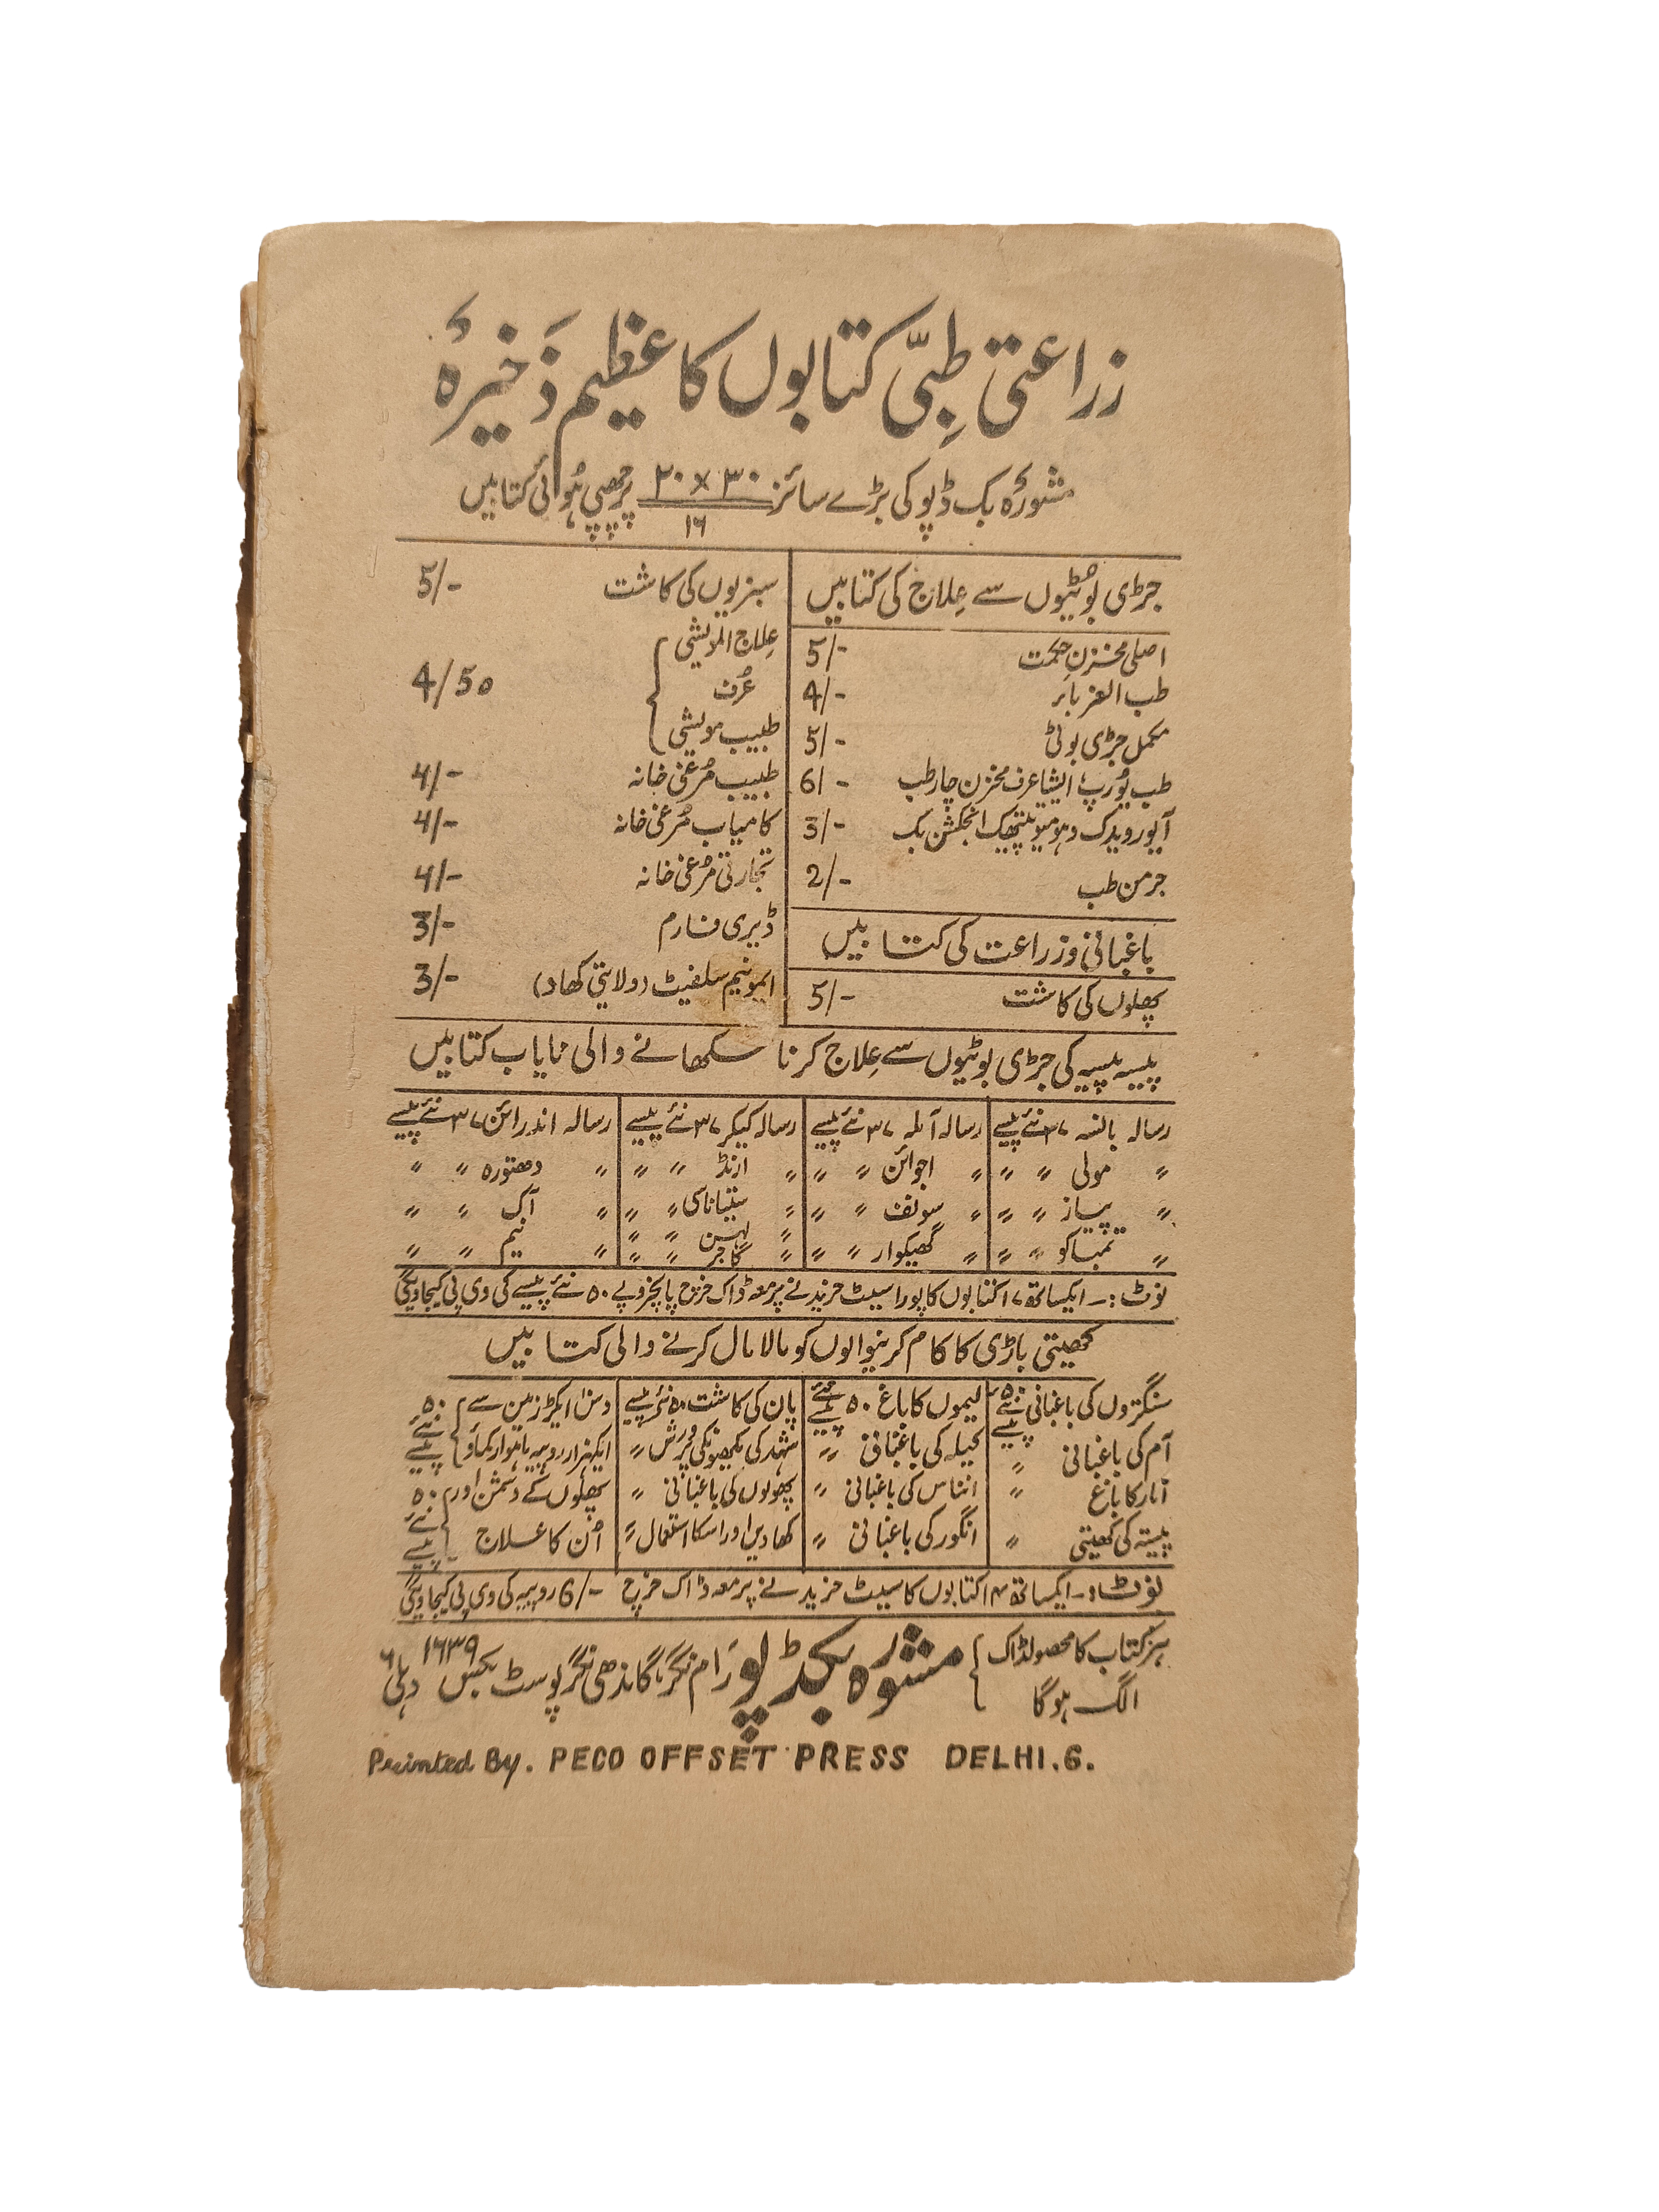 زراعتی طِبّی کتابوں کا عظیم ذَخیرۂ
مشورۂ بک ڈپو کی بڑے سائز ۳۰×۲۰/۱۶ پر چھپی ہوئی کتابیں
جڑی بُوٹیوں سے عِلاج کی کتابیں
اصلی مخزنِ حکمت 5/-
طب الغرباء 4/-
مکمل جڑی بوٹی 5/-
طب یُورپ ایشیا عرف مخزن چار طب 6/-
آیورویدک و ہومیوپیتھک انجکشن بک 3/-
جرمن طب 2/-
باغبانی و زراعت کی کتابیں
پھلوں کی کاشت 5/-
سبزیوں کی کاشت 5/-
عِلاج المویشی
عُرف
طبیب مویشی 4/50
طبیب مُرغی خانہ 4/-
کامیاب مُرغی خانہ 4/-
تجارتی مُرغی خانہ 4/-
ڈیری فارم 3/-
ایمونیم سلفیٹ (ولایتی کھاد) 3/-
پیسہ پیسہ کی جڑی بوٹیوں سے عِلاج کرنا سکھانے والی نایاب کتابیں
رسالہ بانسہ ۳۷ نئے پیسے رسالہ آملہ ۳۷ نئے پیسے رسالہ کیکر ۳۷ نئے پیسے رسالہ اندرائن ۳۷ نئے پیسے
〃 مولی 〃 〃 〃 اجوائن 〃 〃 〃 ارنڈ 〃 〃 〃 دھتورہ 〃 〃
〃 پیاز 〃 〃 〃 سونف 〃 〃 〃 ستیاناسی 〃 〃 〃 آک 〃 〃
〃 تمباکو 〃 〃 〃 گھیکوار 〃 〃 〃 لہسن 〃 〃 〃 نیم 〃 〃
〃 گاجر 〃 〃
نوٹ:۔ ایکساتھ ۱۷ کتابوں کا پورا سیٹ خریدنے پر معہ ڈاک خرچ پانچ روپے ۵۰ نئے پیسے کی وی پی کیجاویگی
کھیتی باڑی کا کام کرنیوالوں کو مالا مال کرنے والی کتابیں
سنگتروں کی باغبانی ۵۰ نئے پیسے لیموں کا باغ ۵۰ نئے پیسے پان کی کاشت ۵۰ نئے پیسے دس ایکڑ زمین سے
آم کی باغبانی 〃 کیلہ کی باغبانی 〃 شہد کی مکھیونکی پرورش 〃 ایکہزار روپیہ ماہوار کماؤ ۵۰ نئے پیسے
انار کا باغ 〃 انناس کی باغبانی 〃 پھولوں کی باغبانی 〃 پھلوں کے دشمن اور
پپیتہ کی کھیتی 〃 انگور کی باغبانی 〃 کھادیں اور اسکا استعمال 〃 اُن کا علاج ۵۰ نئے پیسے
نوٹ:۔ ایکساتھ ۱۴ کتابوں کا سیٹ خریدنے پر معہ ڈاک خرچ 6/- روپیہ کی وی پی کیجاویگی
ہر کتاب کا محصولڈاک
الگ ہوگا
مشورہ بکڈپو رام نگر گاندھی نگر پوسٹ بکس ۱۶۳۹ دہلی ۶
Printed By. PECO OFFSET PRESS DELHI.6.